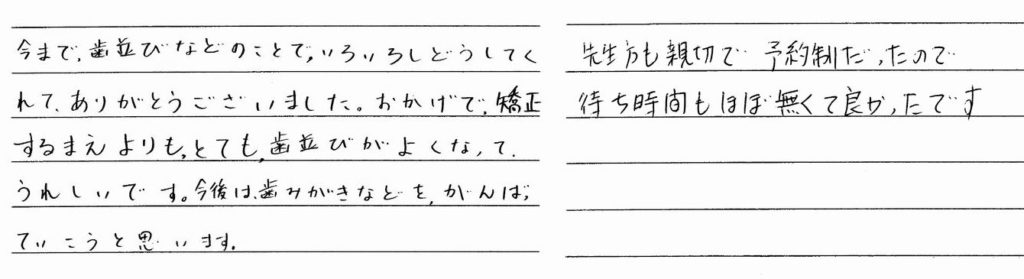 今まで、歯並びなどのことで、いろいろしどうしてく
れて、ありがとうございました。おかげで、矯正
するまえよりも、とても、歯並びがよくなって、
うれしいです。今後は、歯みがきなどを、がんばっ
ていこうと思います。
先生方も親切で 予約制だったので
待ち時間もほぼ無くて良かったです